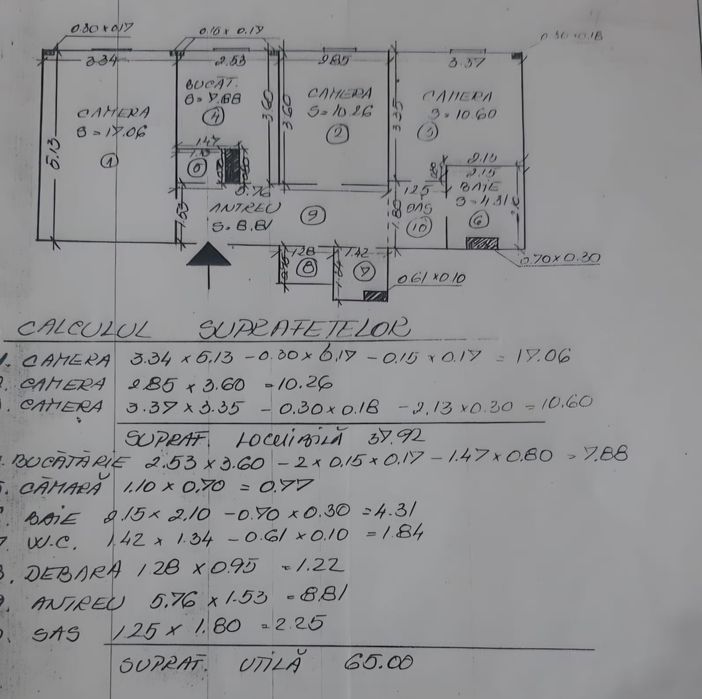 0.30 x 0.17
0.15 x 0.17
0.30 x 0.18
3.34
2.53
2.85
3.37
CAMERA
S = 17.06
1
5.13
BUCĂT.
S = 7.88
4
3.60
3.60
CAMERA
S = 10.26
2
3.35
CAMERA
S = 10.60
3
1.47
5
2.15
2.15
BAIE
S = 4.31
6
5.76
ANTREU
S = 8.81
1.53
9
1.80
1.25
SAS
10
1.28
8
1.42
7
0.61 x 0.10
0.70 x 0.30
CALCULUL SUPRAFEȚELOR
1. CAMERA 3.34 x 5.13 - 0.30 x 0.17 - 0.15 x 0.17 = 17.06
2. CAMERA 2.85 x 3.60 = 10.26
CAMERA 3.37 x 3.35 - 0.30 x 0.18 - 2.13 x 0.30 = 10.60
SUPRAF. LOCUIBILĂ 37.92
BUCĂTĂRIE 2.53 x 3.60 - 2 x 0.15 x 0.17 - 1.47 x 0.80 = 7.88
CĂMARĂ 1.10 x 0.70 = 0.77
BAIE 2.15 x 2.10 - 0.70 x 0.30 = 4.31
W.C. 1.42 x 1.34 - 0.61 x 0.10 = 1.84
8. DEBARA 1.28 x 0.95 = 1.22
9. ANTREU 5.76 x 1.53 = 8.81
SAS 1.25 x 1.80 = 2.25
SUPRAF. UTILĂ 65.00